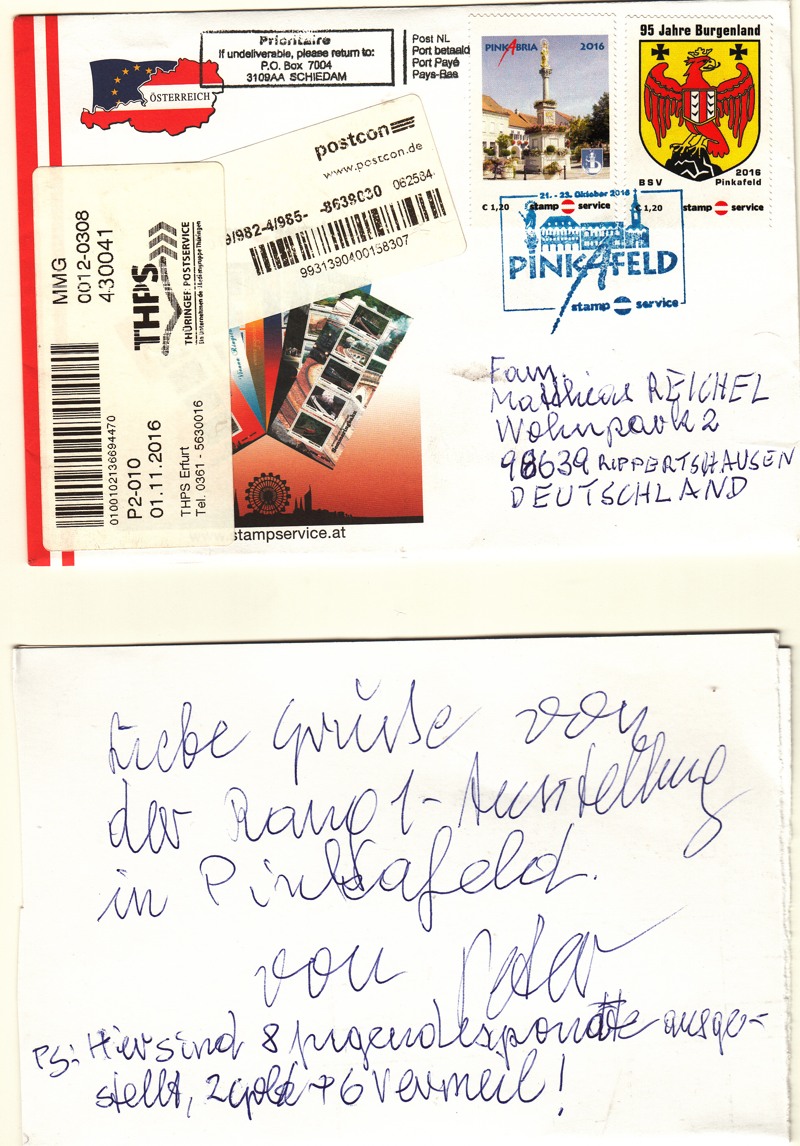 Prioritaire
If undeliverable, please return to:
P.O. Box 7004
3109AA SCHIEDAM
Post NL
Port betaald
Port Payé
Pays-Bas
ÖSTERREICH
PINKABRIA 2016
€ 1,20 stamp service
95 Jahre Burgenland
2016
BSV Pinkafeld
€ 1,20 stamp service
21. - 23. Oktober 2016
PINKAFELD
stamp service
postcon
www.postcon.de
9/982-4/985- -8639030 062584
9931390400158307
MMG 0012-0308
430041
THPS
THÜRINGER POSTSERVICE
Ein Unternehmen der Mediengruppe Thüringen
0100102136694470
P2-010
01.11.2016
THPS Erfurt
Tel. 0361 - 5630016
stampservice.at
Fam.
Matthias REICHEL
Wohnpark 2
98639 RIPPERTSHAUSEN
DEUTSCHLAND
Liebe Grüße von
der Rang 1-Ausstellung
in Pinkafeld.
von Peter
PS: Hier sind 8 Jugendexponate ausge-
stellt, 2 gold + 6 Vermeil!